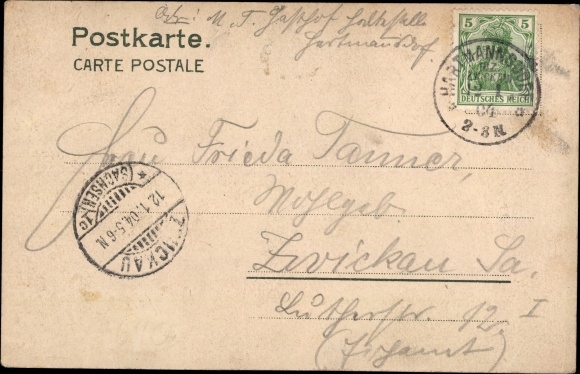 Postkarte.
CARTE POSTALE
M. T. Gasthof Haltestelle
Hartmannsdorf.
5 5
DEUTSCHES REICH
HARTMANNSDORF
04
2-3N
Frau Frieda Tanner,
Wohlgeb.
Zwickau Sa.
Lutherstr. 12. I
ZWICKAU
(SACHSEN) 1c
12.1.04.5-6N